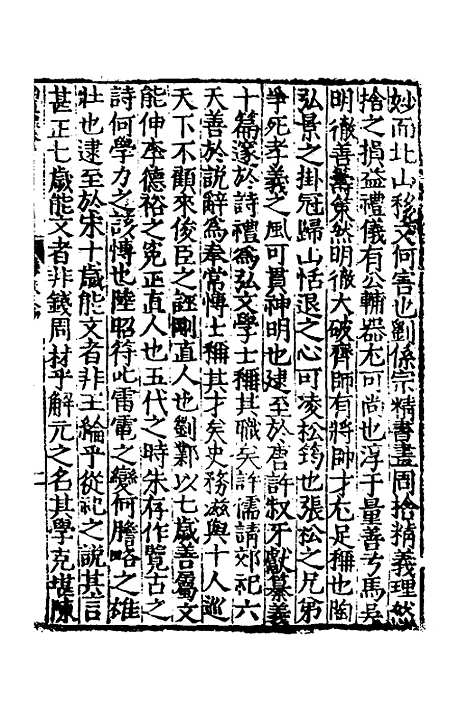 妙而北山移文何害也劉係宗精書畫周捨精義理然
捨之損益禮儀有公輔器尤可尚也淳于量善弓馬吳
明徹善籌策然明徹大破齊師有將帥才尤足稱也陶
弘景之掛冠歸山恬退之心可凌松筠也張松之兄弟
爭死孝義之風可貫神明也逮至於唐許叔牙獻纂義
十篇邃於詩禮爲弘文學士稱其職矣許儒請郊祀六
天善於說辭爲奉常博士稱其才矣史務滋與十人巡
天下不顧來俊臣之誣剛直人也劉鄴以七歲善屬文
能伸李德裕之寃正直人也五代之時朱存作覽古之
詩何學力之該博也陸昭符此雷電之變何膽略之雄
壯也逮至於宋十歲能文者非王綸乎從祀之說其言
甚正七歲能文者非錢周材乎解元之名其學克堪陳